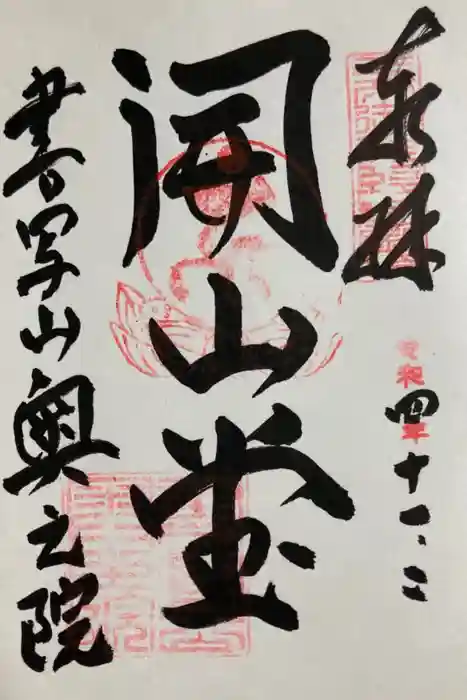 奉拝
令和四年十一、二
開山堂
書写山奥之院